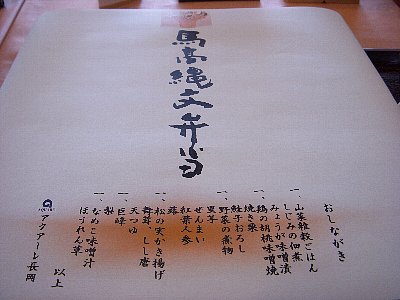 馬高縄文弁当
おしながき
一、山菜雑穀ごはん
しじみの佃煮
みょうが味噌漬
一、鶏の胡桃味噌焼
焼き栗
鮭子おろし
一、野菜の煮物
里芋
ぜんまい
紅葉人参
蕗
一、松の実かき揚げ
舞茸、しし唐
天つゆ
一、巨峰
梨
一、なめこ味噌汁
ほうれん草
以上
アクアーレ長岡